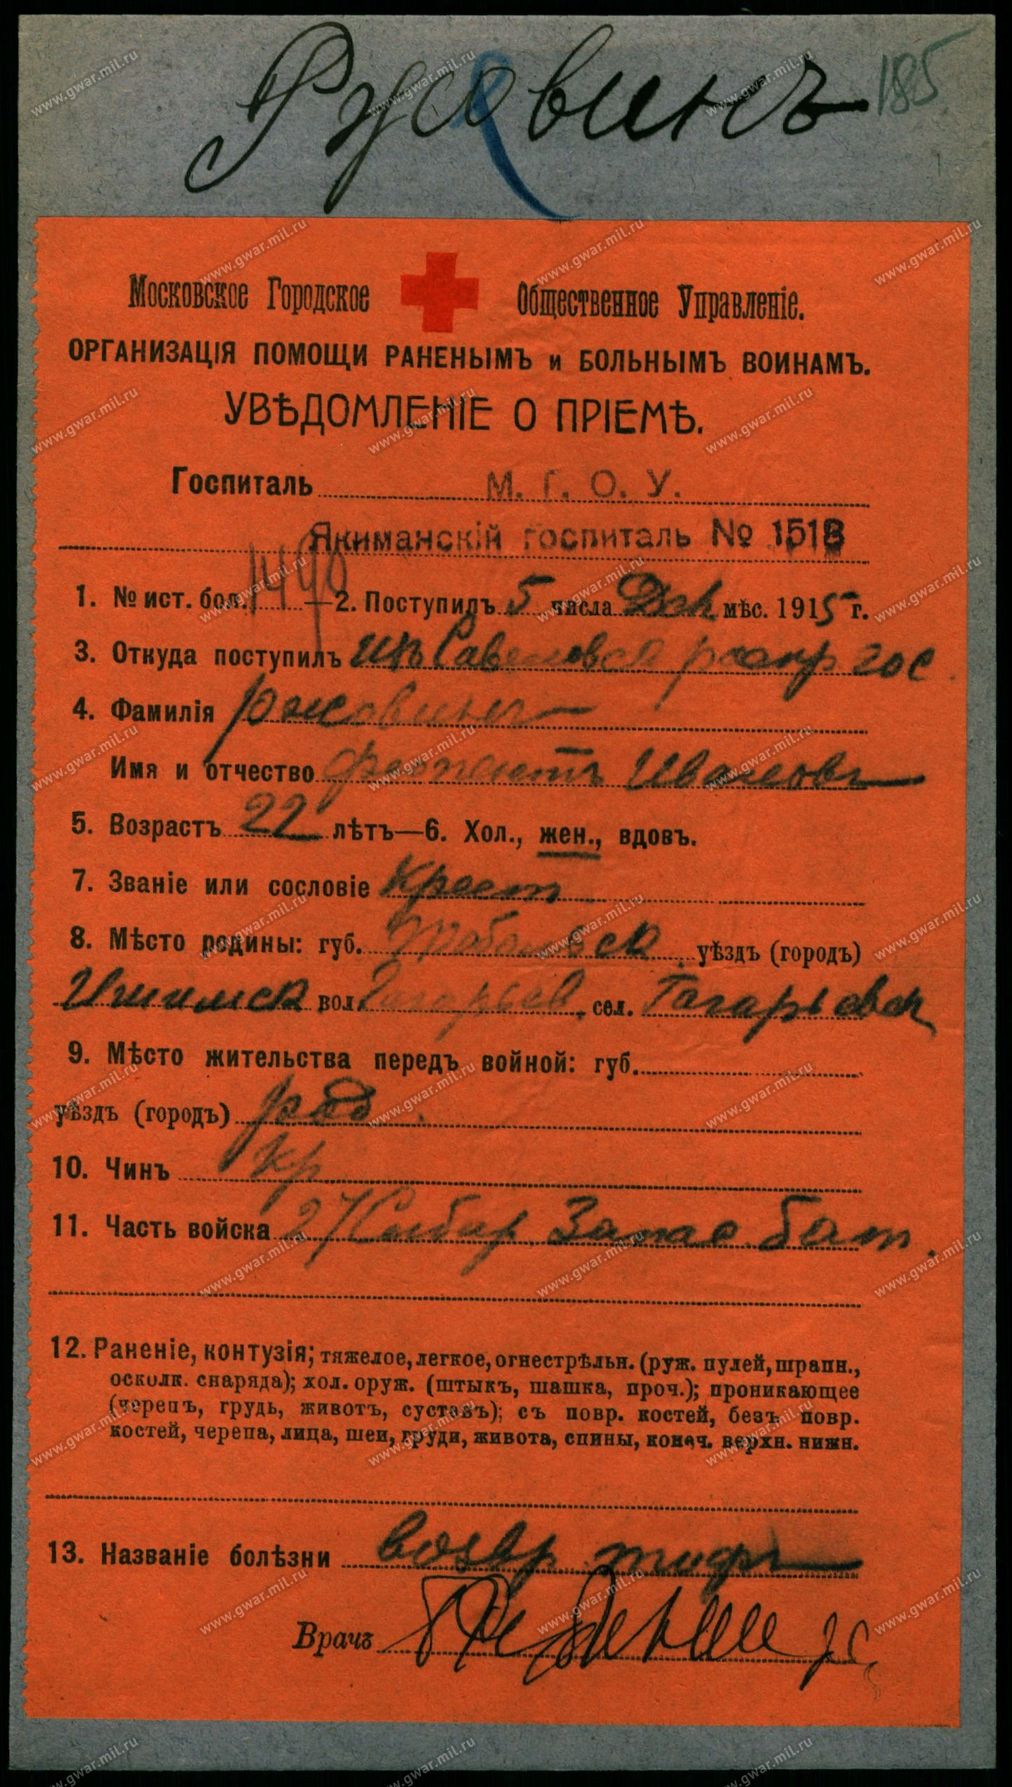 185
Московское Городское Общественное Управленіе.
ОРГАНИЗАЦІЯ ПОМОЩИ РАНЕНЫМЪ и БОЛЬНЫМЪ ВОИНАМЪ.
УВѢДОМЛЕНІЕ О ПРІЕМѢ.
Госпиталь М. Г. О. У.
Якиманскій госпиталь № 1513
1. № ист. бол. 1490 —2. Поступилъ 5 числа Дек мѣс. 1915 г.
3. Откуда поступилъ изъ Савеловск гос
4. Фамилія
Имя и отчество Иванов
5. Возрастъ 22 лѣтъ—6. Хол., жен., вдовъ.
7. Званіе или сословіе Крест
8. Мѣсто родины: губ. Тобольск уѣздъ (городъ)
Ишимск вол. Гагарьев. сел. Гагарьевск
9. Мѣсто жительства передъ войной: губ.
уѣздъ (городъ)
10. Чинъ
11. Часть войска 27 Сибир Запас бат.
12. Раненіе, контузія; тяжелое, легкое, огнестрѣльн. (руж. пулей, шрапн.,
осколк. снаряда); хол. оруж. (штыкъ, шашка, проч.); проникающее
(черепъ, грудь, животъ, суставъ); съ повр. костей, безъ повр.
костей, черепа, лица, шеи, груди, живота, спины, конеч. верхн. нижн.
13. Названіе болѣзни возвр тифъ
Врачъ
www.gwar.mil.ru